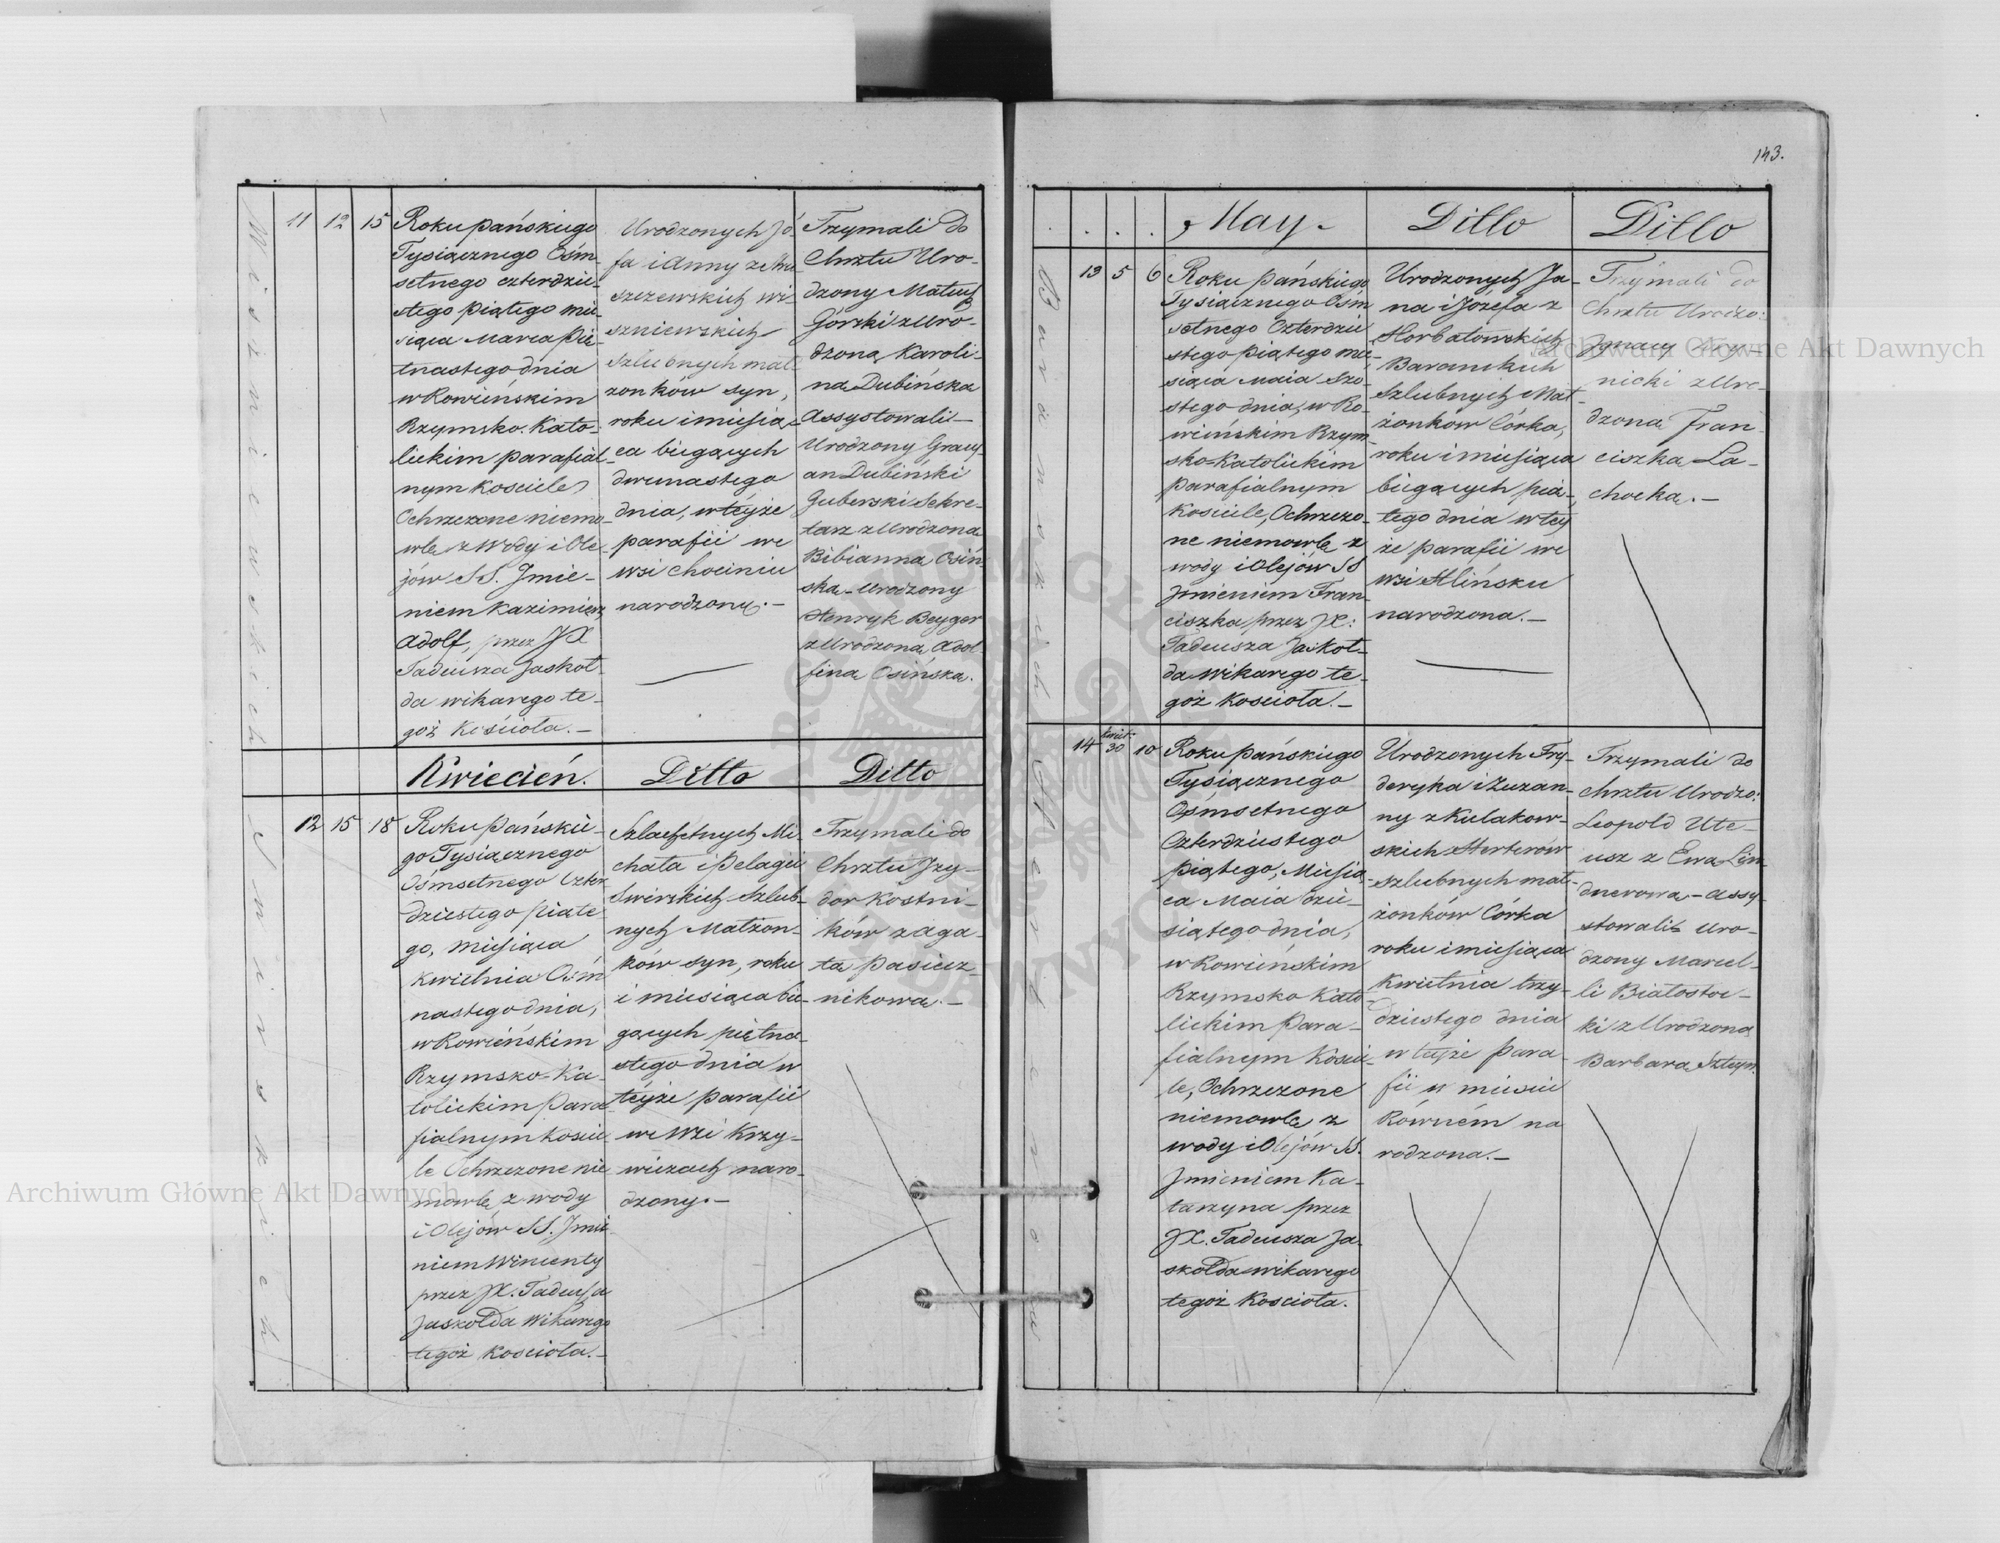 143.
11 12 15
Roku pańskiego
Tysiącznego Ośm-
setnego czterdzie-
stego piątego mie-
siąca Marca Pię-
tnastego dnia
w Rowieńskim
Rzymsko-Kato-
lickim parafial-
nym Kościele
Ochrzczone niemo-
wle z Wody i Ole-
jów SS. Jmie-
niem Kazimierz,
Adolf, przez JX
Tadeusza Jaskoł-
da wikarego te-
goż Kościoła.-
Urodzonych Jó-
fa i Anny z
szczewskich Wi-
szniewskich
szlubnych mał-
żonków syn,
roku i miesią-
ca biegących
dwunastego
dnia, w téyże
parafii we
wsi Chociniu
narodzony.-
Trzymali do
Chrztu Uro-
dzony Mateusz
Górski z Uro-
dzoną Karoli-
na Dubińska
Assystowali-
Urodzony Gracy-
an Dubiński
Guberski Sekre-
tarz z Urodzoną
Bibianna Osiń-
ska-Urodzony
Henryk Beyger
z Urodzoną Adol-
fina Osińska.
Wiszniewskich
Kwiecień. Ditto Ditto
12 15 18
Roku Pańskie-
go Tysiącznego
Ośmsetnego Czter-
dziestego Piąte-
go, miesiąca
Kwietnia Ośm
nastego dnia,
w Rowieńskim
Rzymsko-Ka-
tolickim Para-
fialnym Koście-
le Ochrzczone nie
mowle z wody
i Olejów SS. Jmie
niem Wincenty
przez JX. Tadeusza
Jaskołda Wikarego
tegoż Kościoła.-
Szlachetnych Mi-
chała i Pelagii
Swirskich Szlub-
nych Małżon-
ków syn, roku
i miesiąca bie-
gących piętna-
stego dnia w
téyże parafii
we wsi Krzy-
wiczach naro-
dzony.-
Trzymali do
Chrztu Jzy-
dor Kostni-
ków z Aga-
ta Pasiecz-
nikowa.-
Swirskich
May. Ditto Ditto
13 5 6
Roku Pańskiego
Tysiącznego Ośm
setnego Czterdzie
stego piątego mie-
siąca Maia Szó-
stego dnia, w Ro-
wieńskim Rzym-
sko-Katolickim
parafialnym
Kościele, Ochrzczo-
ne niemowle z
wody i Olejów SS
Jmieniem Fran-
ciszka przez JX:
Tadeusza Jaskoł-
da wikarego te-
goż Kościoła.-
Urodzonych Ja-
na i Józefa z
Horbatowskich
Baranskich
Szlubnych Mał-
żonków Córka,
roku i miesiąca
biegących pią-
tego dnia w téy
że parafii we
wsi Hlińsku
narodzona.-
Trzymali do
Chrztu Urodzo:
Jgnacy
nicki z Uro-
dzoną Fran-
ciszka La-
chocka.-
Baranskich
14 kwiet: 30 10
Roku Pańskiego
Tysiącznego
Ośmsetnego
Czterdziestego
piątego, Miesią-
ca Maia dzie-
siątego dnia,
w Rowieńskim
Rzymsko Kato-
lickim Para-
fialnym Koście-
le, Ochrzczone
niemowle z
wody i Olejów SS.
Jmieniem Ka-
tarzyna przez
JX. Tadeusza Ja-
skołda wikarego
tegoż Kościoła.
Urodzonych Fry-
deryka i Zuzan-
ny z Kułakow-
skich Herterów
szlubnych mał-
żonków Córka
roku i miesiąca
Kwietnia trzy-
dziestego dnia
w téjże para-
fii w mieście
Równém na
rodzona.-
Trzymali do
chrztu Urodzo:
Leopold Ute-
usz z Ewa Lin-
dnerowa.-Assy-
stowali: Uro-
dzony Marcel-
li Białostoc-
ki z Urodzoną
Barbara Sztejn.
Archiwum Główne Akt Dawnych
Archiwum Główne Akt Dawnych